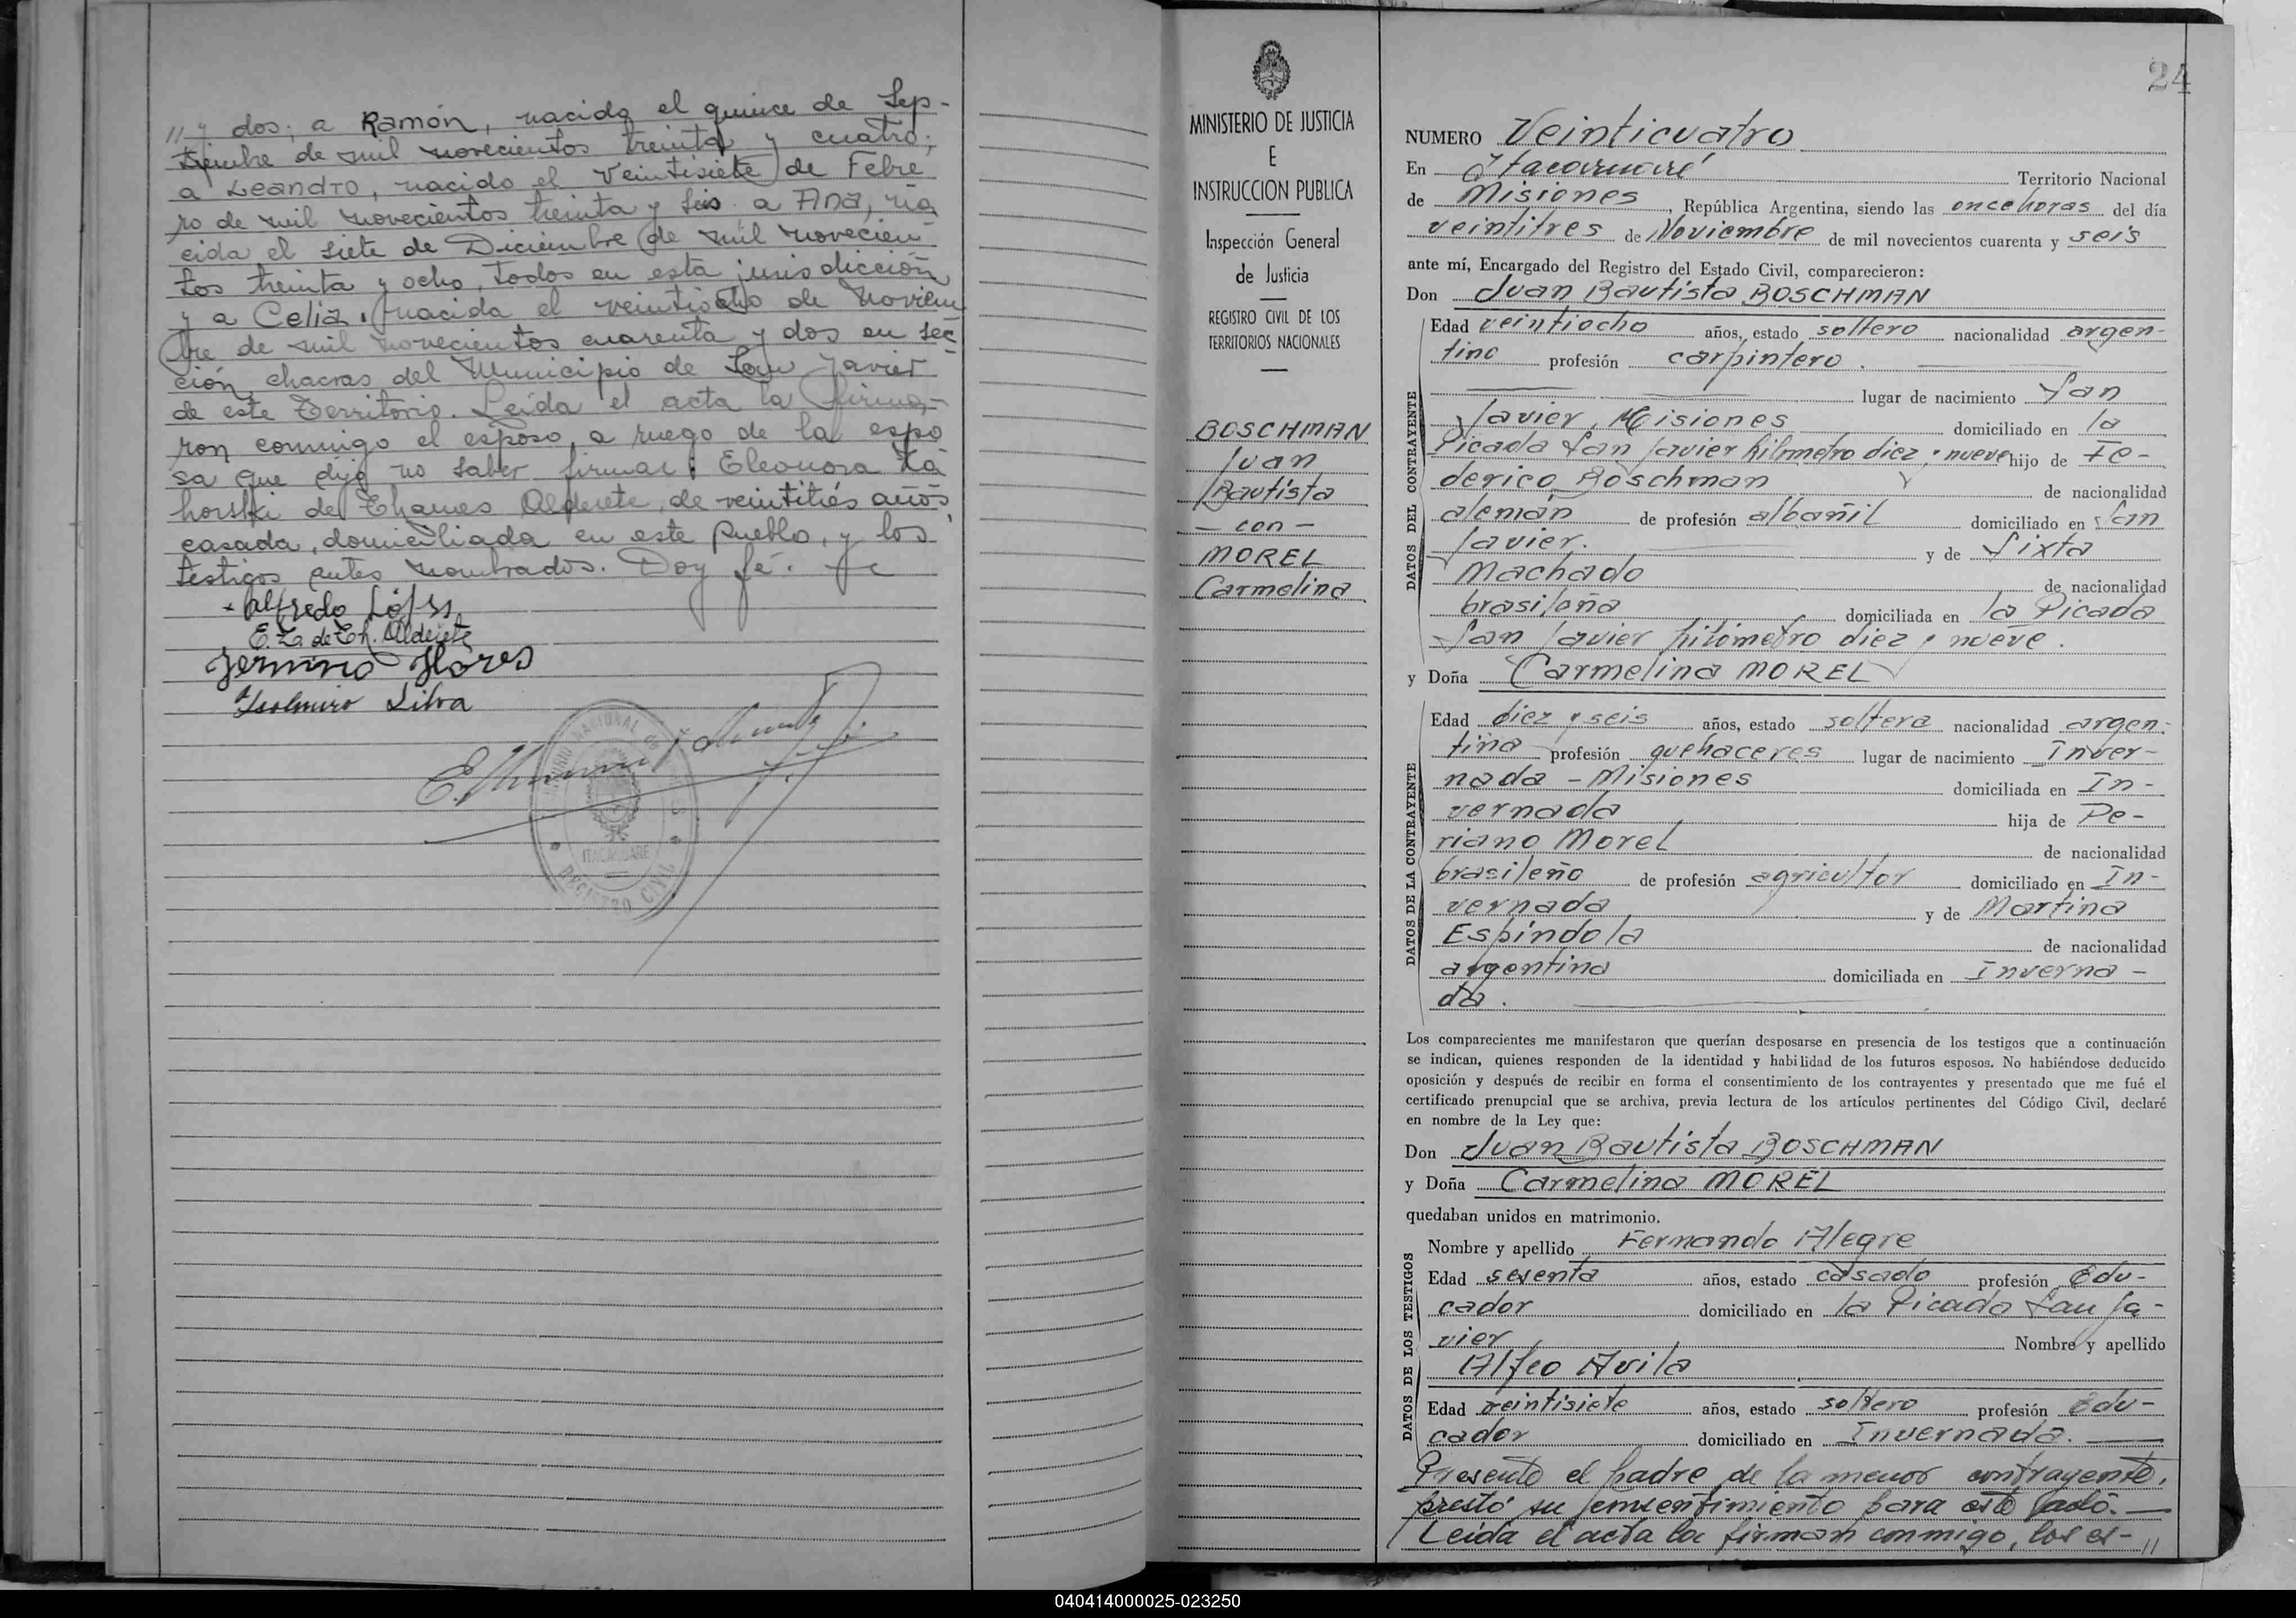 // y dos; a Ramón, nacido el quince de Sep-
tiembre de mil novecientos treinta y cuatro;
a Leandro, nacido el veintisiete de Febre
ro de mil novecientos treinta y seis a Ana, na
cida el siete de Diciembre de mil novecien
tos treinta y ocho, todos en esta jurisdicción
y a Celia, nacida el veintiocho de Noviem
bre de mil novecientos cuarenta y dos en sec
ción chacras del Municipio de San Javier
de este Territorio. Leída el acta la firma-
ron conmigo el esposo, a ruego de la espo
sa que dijo no saber firmar: Eleonora Za
horski de Thames Alderete, de veintitrés años,
casada, domiciliada en este pueblo, y los
testigos antes nombrados. Doy fé.
Alfredo
E. Z. de Th. Alderete
Flores
Silva
REGISTRO CIVIL
MINISTERIO DE JUSTICIA
E
INSTRUCCION PUBLICA
Inspección General
de Justicia
REGISTRO CIVIL DE LOS
TERRITORIOS NACIONALES
BOSCHMAN
Juan
Bautista
— con —
MOREL
Carmelina
24
NUMERO Veinticuatro
En Itacaruaré Territorio Nacional
de Misiones, República Argentina, siendo las once horas del día
veintitres de Noviembre de mil novecientos cuarenta y seis
ante mí, Encargado del Registro del Estado Civil, comparecieron:
Don Juan Bautista BOSCHMAN
DATOS DEL CONTRAYENTE
Edad veintiocho años, estado soltero nacionalidad argen-
tino profesión carpintero.
lugar de nacimiento San
Javier, Misiones domiciliado en la
Picada San Javier kilometro diez y nueve hijo de Fe-
derico Boschman de nacionalidad
alemán de profesión albañil domiciliado en San
Javier. y de Sixta
Machado de nacionalidad
brasileña domiciliada en la Picada
San Javier kilómetro diez y nueve.
y Doña Carmelina MOREL
DATOS DE LA CONTRAYENTE
Edad diez y seis años, estado soltera nacionalidad argen-
tina profesión quehaceres lugar de nacimiento Inver-
nada - Misiones domiciliada en In-
vernada hija de De-
riano Morel de nacionalidad
brasileño de profesión agricultor domiciliado en In-
vernada y de Martina
Espindola de nacionalidad
argentina domiciliada en Inverna-
da.
Los comparecientes me manifestaron que querían desposarse en presencia de los testigos que a continuación
se indican, quienes responden de la identidad y habilidad de los futuros esposos. No habiéndose deducido
oposición y después de recibir en forma el consentimiento de los contrayentes y presentado que me fué el
certificado prenupcial que se archiva, previa lectura de los artículos pertinentes del Código Civil, declaré
en nombre de la Ley que:
Don Juan Bautista BOSCHMAN
y Doña Carmelina MOREL
quedaban unidos en matrimonio.
DATOS DE LOS TESTIGOS
Nombre y apellido Fernando Alegre
Edad años, estado casado profesión Edu-
cador domiciliado en la Picada San Ja-
vier Nombre y apellido
Alfeo Avila
Edad veintisiete años, estado soltero profesión Edu-
cador domiciliado en Invernada.
Presente el padre de la menor contrayente,
prestó su consentimiento para este acto.
Leída el acta la firman conmigo, los es- //
040414000025-023250